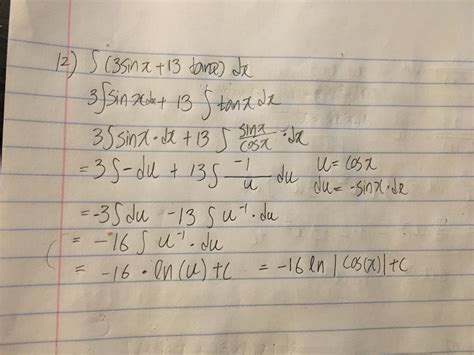 12) ∫ (3sinx + 13 tanx) dx
3∫sinxdx + 13 ∫ tanx dx
3∫sinx·dx + 13 ∫ sinx/cosx ·dx
= 3∫-du + 13∫ -1/u du u = cosx
du = -sinx·dx
= -3∫du - 13 ∫ u⁻¹·du
= -16 ∫ u⁻¹·du
= -16 · ln(u) + C = -16 ln |cos(x)| + C